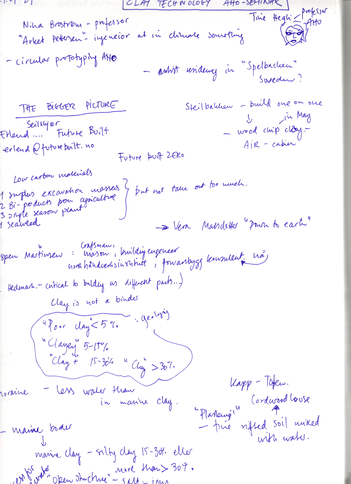 CLAY TECHNOLOGY AHO-SEMINAR
Tine Hegli professor
AHO
Nina Boström - professor
"Anket Petersen" - ingeniør at in climate something
- circular prototyping AHO
- artist residency in "Spelbacken"
Sweden?
THE BIGGER PICTURE
Steilbakken - build one on one
in May
- wood chip clay -
AIR - cabin
Erlend .... Future Built
erlend@futurebuilt.no
Future built ZERO
Low carbon materials
1 surplus excavation masses
2 Bi-products from agriculture
3 single season plant
4 seaweed
but not take out too much.
→ Vera "Down to earth"
Martinsen : craftsman,
mason, building engineer
- critical to building as different parts...)
Clay is not a binder
"Poor clay" < 5 %. : geology
"Clayey" 5-15%
"Clay" + 15-30% "Clay" > 30%.
moraine - less water than
in marine clay.
Kapp - Toten.
Cordwood house
- fine sifted soil mixed
with water.
- marine border
marine clay - silty clay 15-30% eller
more than > 30%.
"Open structure" - salt - ions